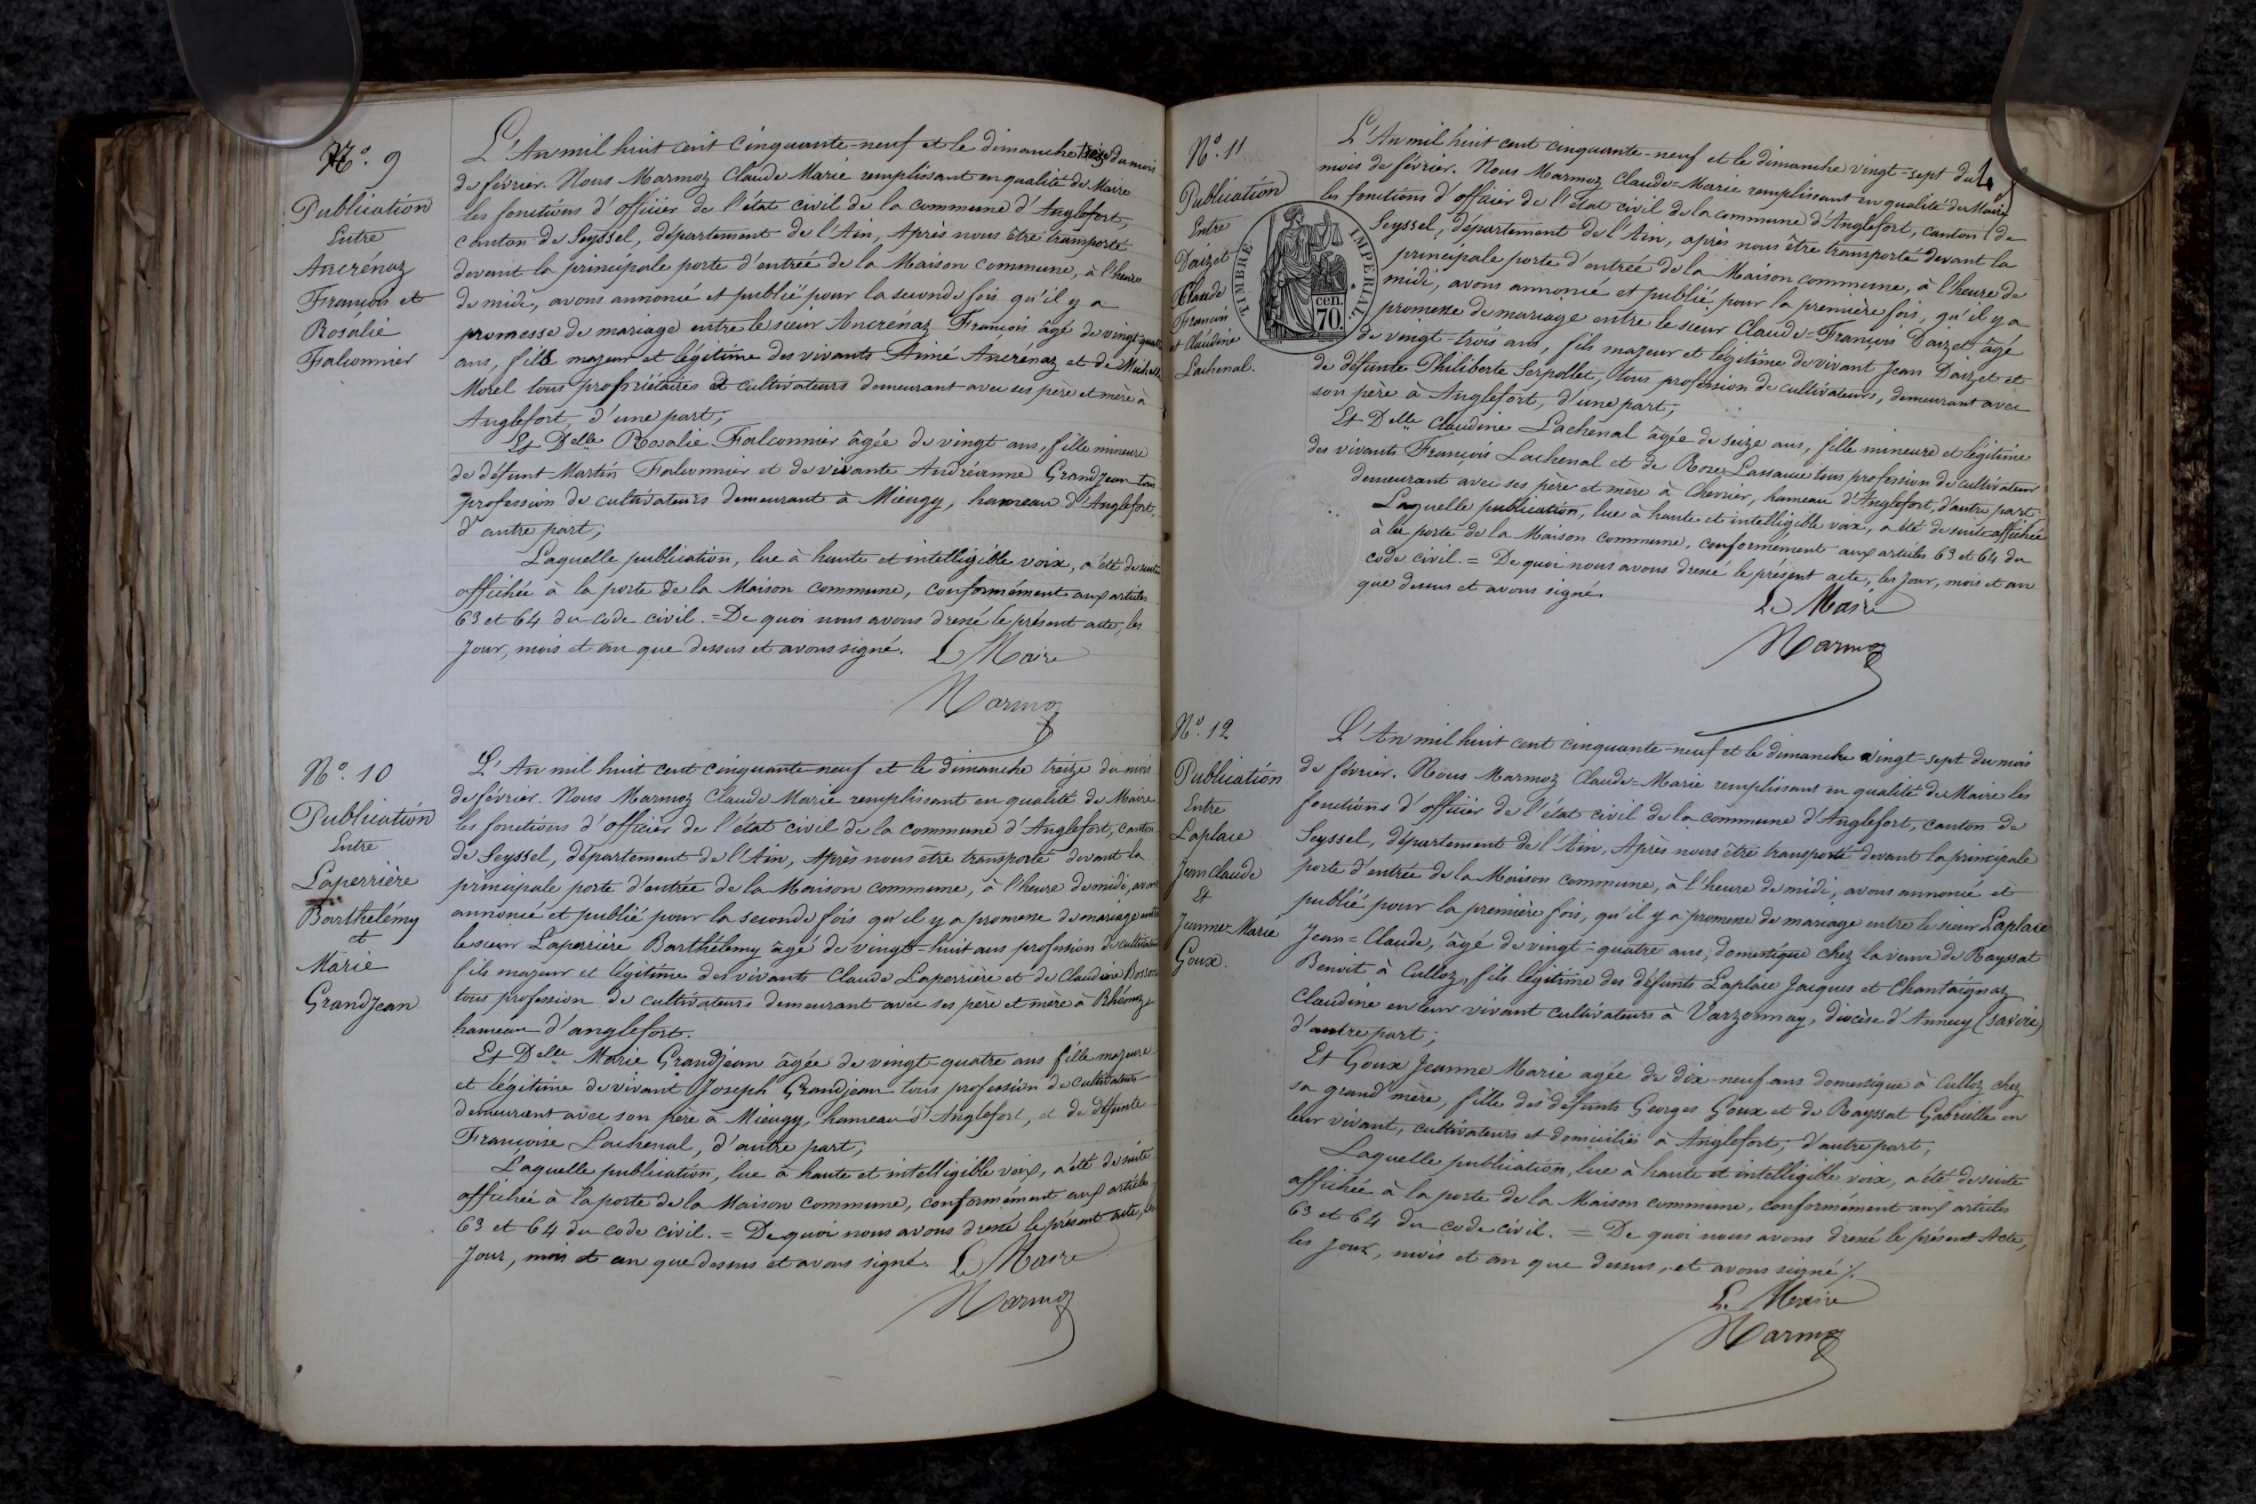 N.º 9
Publication
Entre
Ancrénaz
François et
Rosalie
Falconnier
L'An mil huit cent cinquante-neuf et le dimanche treize du mois
de février. Nous Marmoz Claude Marie remplissant en qualité de Maire
les fonctions d'officier de l'état civil de la commune d'Anglefort,
canton de Seyssel, département de l'Ain, Après nous être transporté
devant la principale porte d'entrée de la Maison commune, à l'heure
de midi, avons annoncé et publié pour la seconde fois qu'il y a
promesse de mariage entre le sieur Ancrénaz François âgé de vingt-quatre
ans, fils majeur et légitime des vivants Aimé Ancrénaz et de Michelle
Morel tous propriétaires et cultivateurs demeurant avec ses père et mère à
Anglefort, d'une part;
Et Delle Rosalie Falconnier âgée de vingt ans, fille mineure
de défunt Martin Falconnier et de vivante Andréanne Grandjean tous
profession de cultivateurs demeurant à Mieugy, hameau d'Anglefort,
d'autre part;
Laquelle publication, lue à haute et intelligible voix, a été de suite
affichée à la porte de la Maison commune, conformément aux articles
63 et 64 du code civil. = De quoi nous avons dressé le présent acte, les
jour, mois et an que dessus et avons signé. Le Maire
Marmoz
N.º 10
Publication
Entre
Laperrière
Barthelémy
et
Marie
Grandjean
L'An mil huit cent cinquante-neuf et le dimanche treize du mois
de février. Nous Marmoz Claude Marie remplissant en qualité de Maire
les fonctions d'officier de l'état civil de la commune d'Anglefort, canton
de Seyssel, département de l'Ain, Après nous être transporté devant la
principale porte d'entrée de la Maison commune, à l'heure de midi, avons
annoncé et publié pour la seconde fois qu'il y a promesse de mariage entre
le sieur Laperrière Barthélemy âgé de vingt-huit ans profession de cultivateur
fils majeur et légitime des vivants Claude Laperrière et de Claudine Bosson
tous profession de cultivateurs demeurant avec ses père et mère à Rhémoz
hameau d'anglefort.
Et Delle Marie Grandjean âgée de vingt-quatre ans fille majeure
et légitime de vivant Joseph Grandjean tous profession de cultivateurs
demeurant avec son père à Mieugy, hameau d'Anglefort, et de défunte
Françoise Lachenal, d'autre part;
Laquelle publication, lue à haute et intelligible voix, a été de suite
affichée à la porte de la Maison commune, conformément aux articles
63 et 64 du code civil. = De quoi nous avons dressé le présent acte, les
jour, mois et an que dessus et avons signé. Le Maire
Marmoz
N.º 11
Publication
Entre
Daizet
Claude
François
et Claudine
Lachenal.
TIMBRE IMPERIAL
cen.
70.
L'An mil huit cent cinquante-neuf et le dimanche vingt-sept du
mois de février. Nous Marmoz Claude=Marie remplissant en qualité de Maire
les fonctions d'officier de l'état civil de la commune d'Anglefort, canton de
Seyssel, département de l'Ain, après nous être transporté devant la
principale porte d'entrée de la Maison commune, à l'heure de
midi, avons annoncé et publié pour la première fois, qu'il y a
promesse de mariage entre le sieur Claude=François Daizet âgé
de vingt-trois ans, fils majeur et légitime de vivant Jean Daizet et
de défunte Philiberte Serpollet, tous profession de cultivateurs, demeurant avec
son père à Anglefort, d'une part;
Et Delle Claudine Lachenal âgée de seize ans, fille mineure et légitime
des vivants François Lachenal et de Rose Lassauce tous profession de cultivateur
demeurant avec ses père et mère à Chevrier, hameau d'Anglefort, d'autre part.
Laquelle publication, lue à haute et intelligible voix, a été de suite affichée
à la porte de la Maison commune, conformément aux articles 63 et 64 du
code civil. = De quoi nous avons dressé le présent acte, les jour, mois et an
que dessus et avons signé.
Le Maire
Marmoz
N.º 12
Publication
Entre
Laplace
Jean Claude
Et
Jeanne-Marie
Goux.
L'An mil huit cent cinquante-neuf et le dimanche vingt-sept du mois
de février. Nous Marmoz Claude=Marie remplissant en qualité de Maire les
fonctions d'officier de l'état civil de la commune d'Anglefort, canton de
Seyssel, département de l'Ain, Après nous être transporté devant la principale
porte d'entrée de la Maison commune, à l'heure de midi, avons annoncé et
publié pour la première fois, qu'il y a promesse de mariage entre le sieur Laplace
Jean=Claude, âgé de vingt-quatre ans, domestique chez la veuve de Rayssat
Benoit à Culloz, fils légitime des défunts Laplace Jacques et Chantaignaz
Claudine en leur vivant cultivateurs à Varzonnay, diocèse d'Annecy (Savoie)
d'autre part;
Et Goux Jeanne Marie agée de dix-neuf ans domestique à Culloz chez
sa grand mère, fille des défunts Georges Goux et de Rayssat Gabrielle en
leur vivant, cultivateurs et domiciliés à Anglefort, d'autre part;
Laquelle publication, lue à haute et intelligible voix, a été de suite
affichée à la porte de la Maison commune, conformément aux articles
63 et 64 du code civil. = De quoi nous avons dressé le présent Acte,
les jour, mois et an que dessus, et avons signé ./.
Le Maire
Marmoz